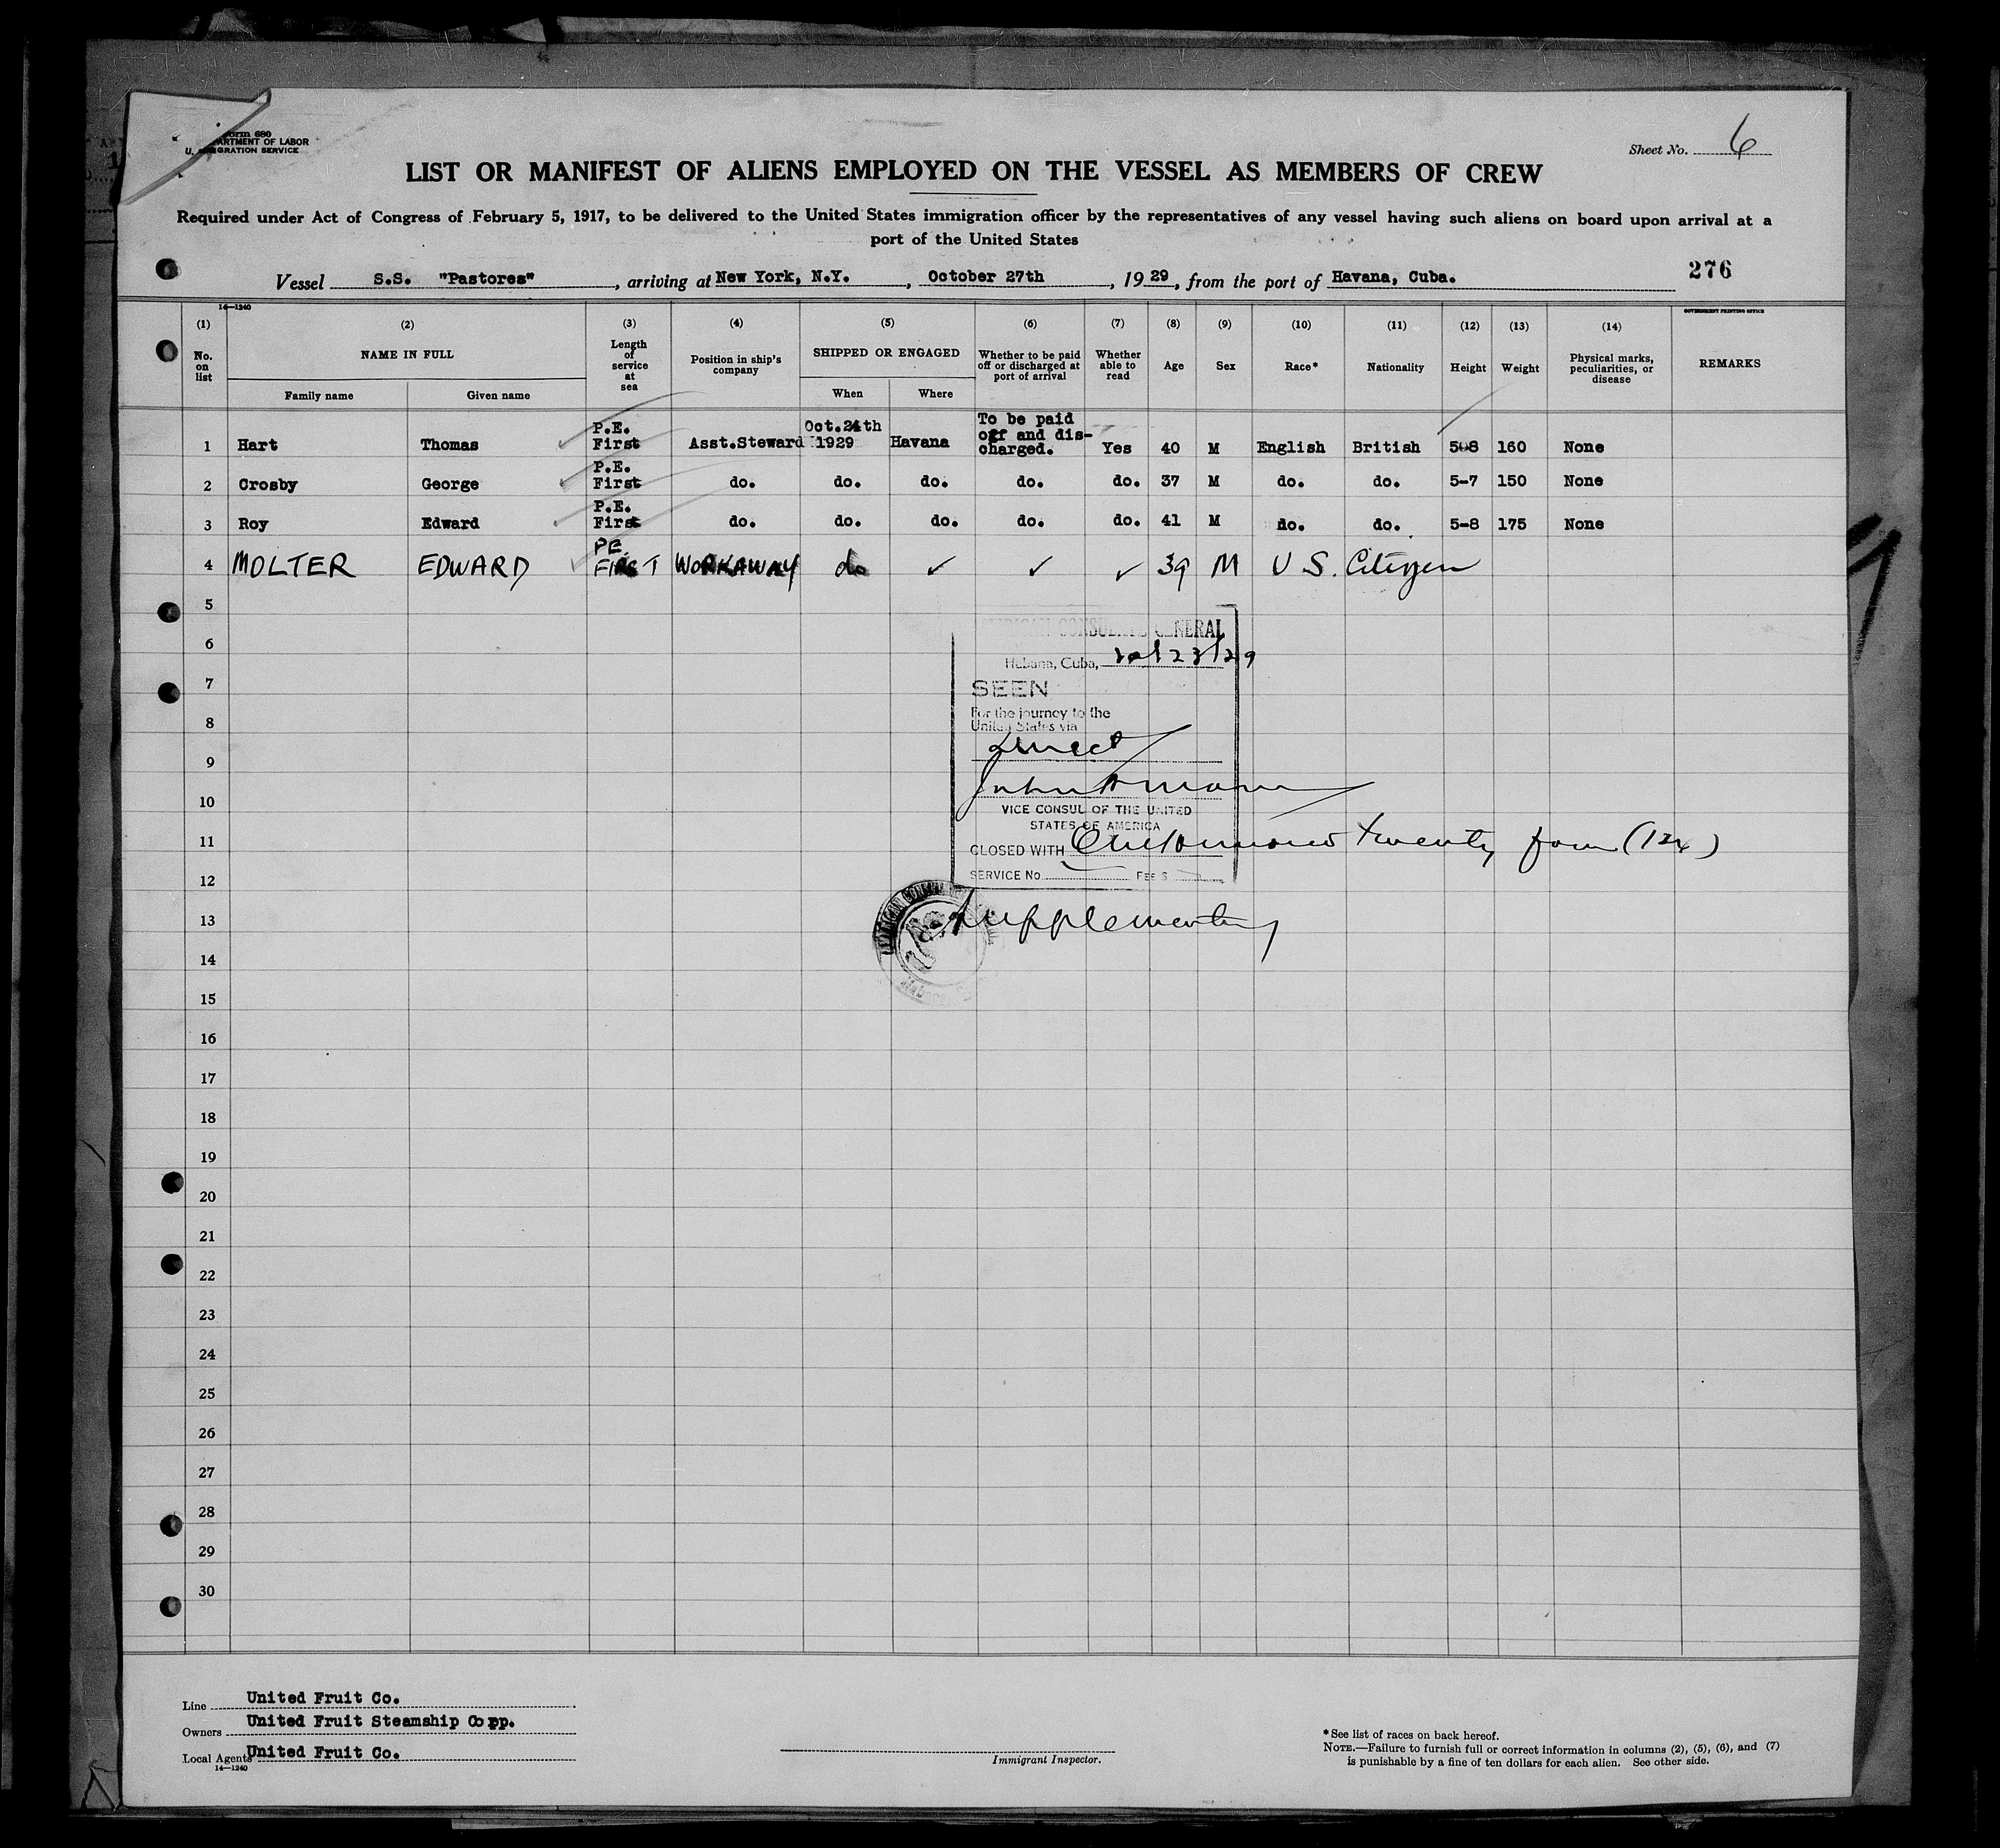 Form 680
U. S. DEPARTMENT OF LABOR
IMMIGRATION SERVICE
Sheet No. 6
LIST OR MANIFEST OF ALIENS EMPLOYED ON THE VESSEL AS MEMBERS OF CREW
Required under Act of Congress of February 5, 1917, to be delivered to the United States immigration officer by the representatives of any vessel having such aliens on board upon arrival at a
port of the United States
Vessel S.S. "Pastores", arriving at New York, N.Y., October 27th, 1929, from the port of Havana, Cuba. 276
14—1240 GOVERNMENT PRINTING OFFICE
(1) (2) (3) (4) (5) (6) (7) (8) (9) (10) (11) (12) (13) (14)
No. on list NAME IN FULL Length of service at sea Position in ship's company SHIPPED OR ENGAGED Whether to be paid off or discharged at port of arrival Whether able to read Age Sex Race* Nationality Height Weight Physical marks, peculiarities, or disease REMARKS
Family name Given name When Where
1 Hart Thomas P.E. First Asst.Steward Oct.24th 1929 Havana To be paid off and discharged. Yes 40 M English British 5-8 160 None
2 Crosby George P.E. First do. do. do. do. do. 37 M do. do. 5-7 150 None
3 Roy Edward P.E. First do. do. do. do. do. 41 M do. do. 5-8 175 None
4 MOLTER EDWARD PE FIRST WORKAWAY do ✓ ✓ ✓ 39 M U S. Citizen
5
6
7
8
9
10
11
12
13
14
15
16
17
18
19
20
21
22
23
24
25
26
27
28
29
30
AMERICAN CONSULATE GENERAL
Habana, Cuba, 10/23/29
SEEN
For the journey to the
United States via
direct
VICE CONSUL OF THE UNITED
STATES OF AMERICA
CLOSED WITH One hundred twenty four (124)
SERVICE No. FEE $
Supplementary
Line United Fruit Co.
Owners United Fruit Steamship Corp.
Local Agents United Fruit Co.
14—1240
Immigrant Inspector.
*See list of races on back hereof.
NOTE.—Failure to furnish full or correct information in columns (2), (5), (6), and (7)
is punishable by a fine of ten dollars for each alien. See other side.